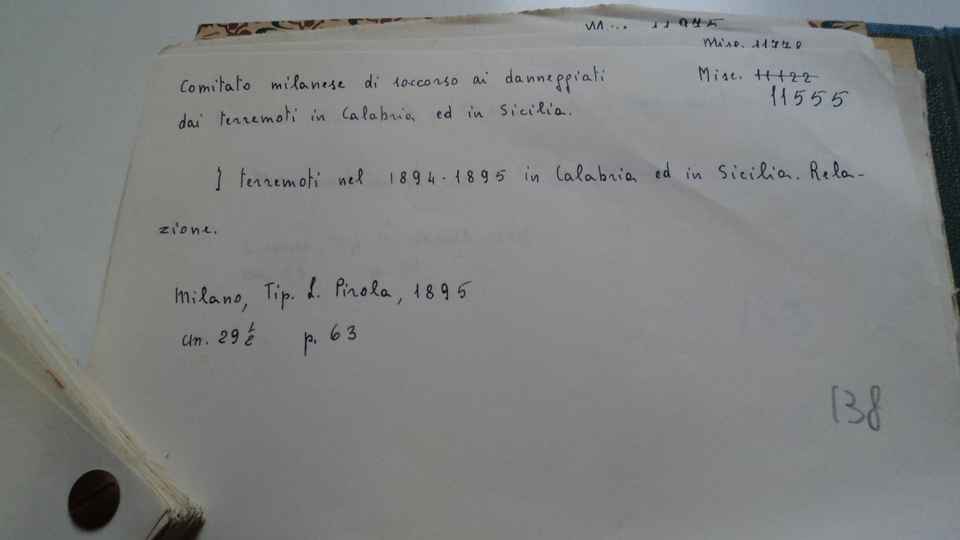 11975
Misc. 11770
Comitato milanese di soccorso ai danneggiati Misc. 11122
dai terremoti in Calabria ed in Sicilia. 11555
I terremoti nel 1894-1895 in Calabria ed in Sicilia. Rela-
zione.
Milano, Tip. L. Pirola, 1895
cm. 29 1/2 p. 63
138